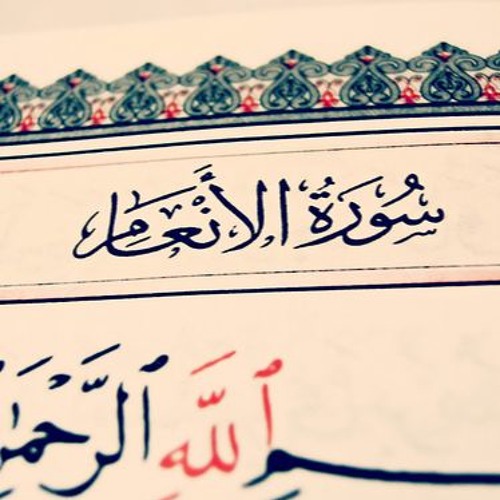 سُورَةُ الأَنْعَامِ
ـمِ ٱللَّهِ ٱلرَّحْمَٰنِ